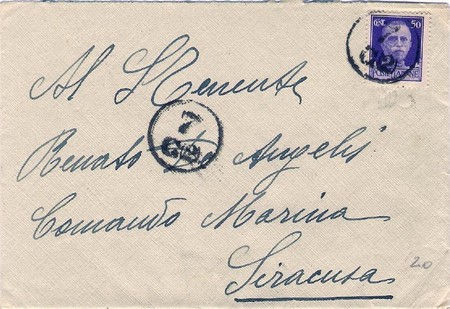 CENT. 50
Al S. Tenente
7
C2
Renato De Angelis
Comando Marina
Siracusa
20